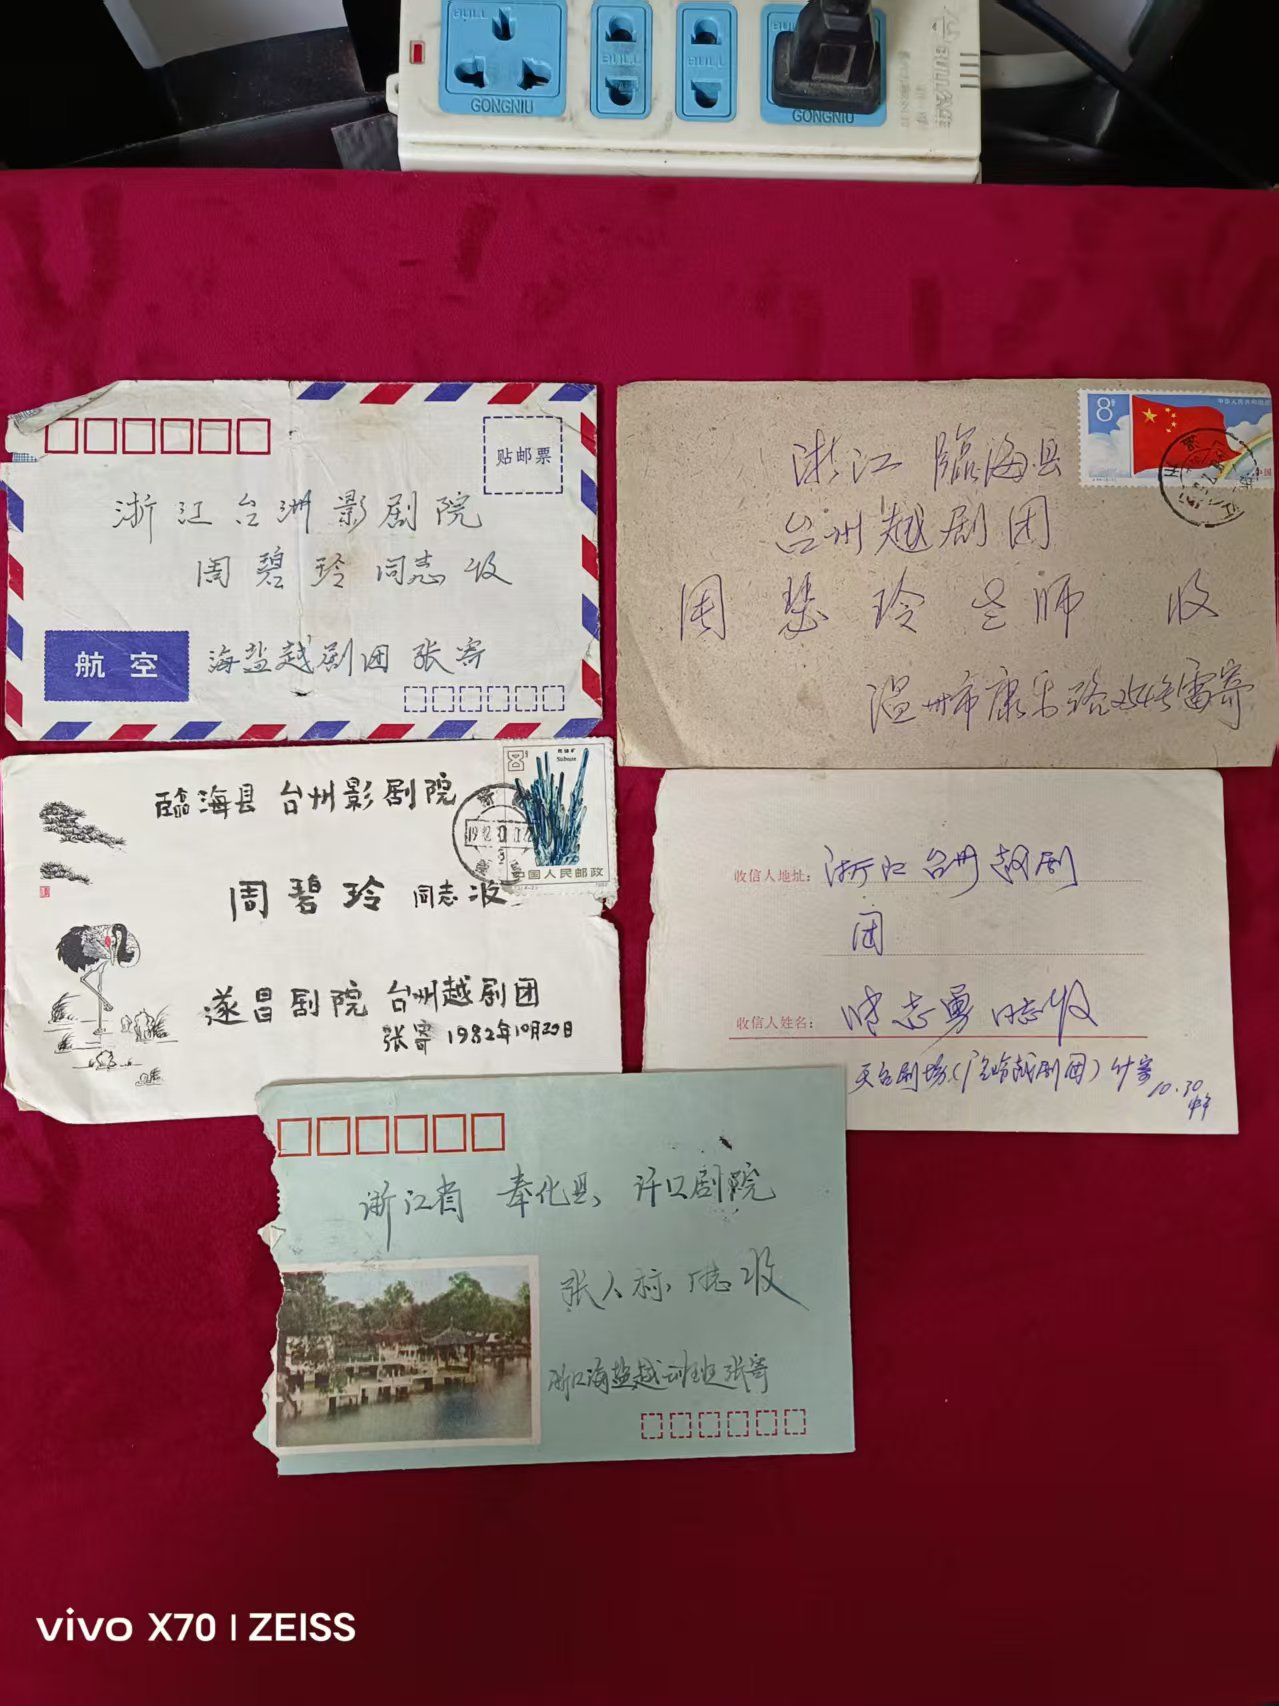 BULL
BULL
BULL
BULL
GONGNIU
GONGNIU
BULL
贴邮票
浙江台洲影剧院
周碧玲同志收
航空
海盐越剧团张寄
8分
中国人民邮政
浙江临海县
台州越剧团
周碧玲老师 收
温州市康乐路 号雷寄
临海县台州影剧院
周碧玲同志收
遂昌剧院 台州越剧团
张寄 1982年10月20日
8分
辉锑矿
Stibnite
中国人民邮政
收信人地址：浙江台州越剧
团
收信人姓名： 志勇同志收
天台剧场( 越剧团) 寄
10.30
浙江省 奉化县、 口剧院
张人标同志收
浙江海盐越训班张寄
vivo X70 | ZEISS